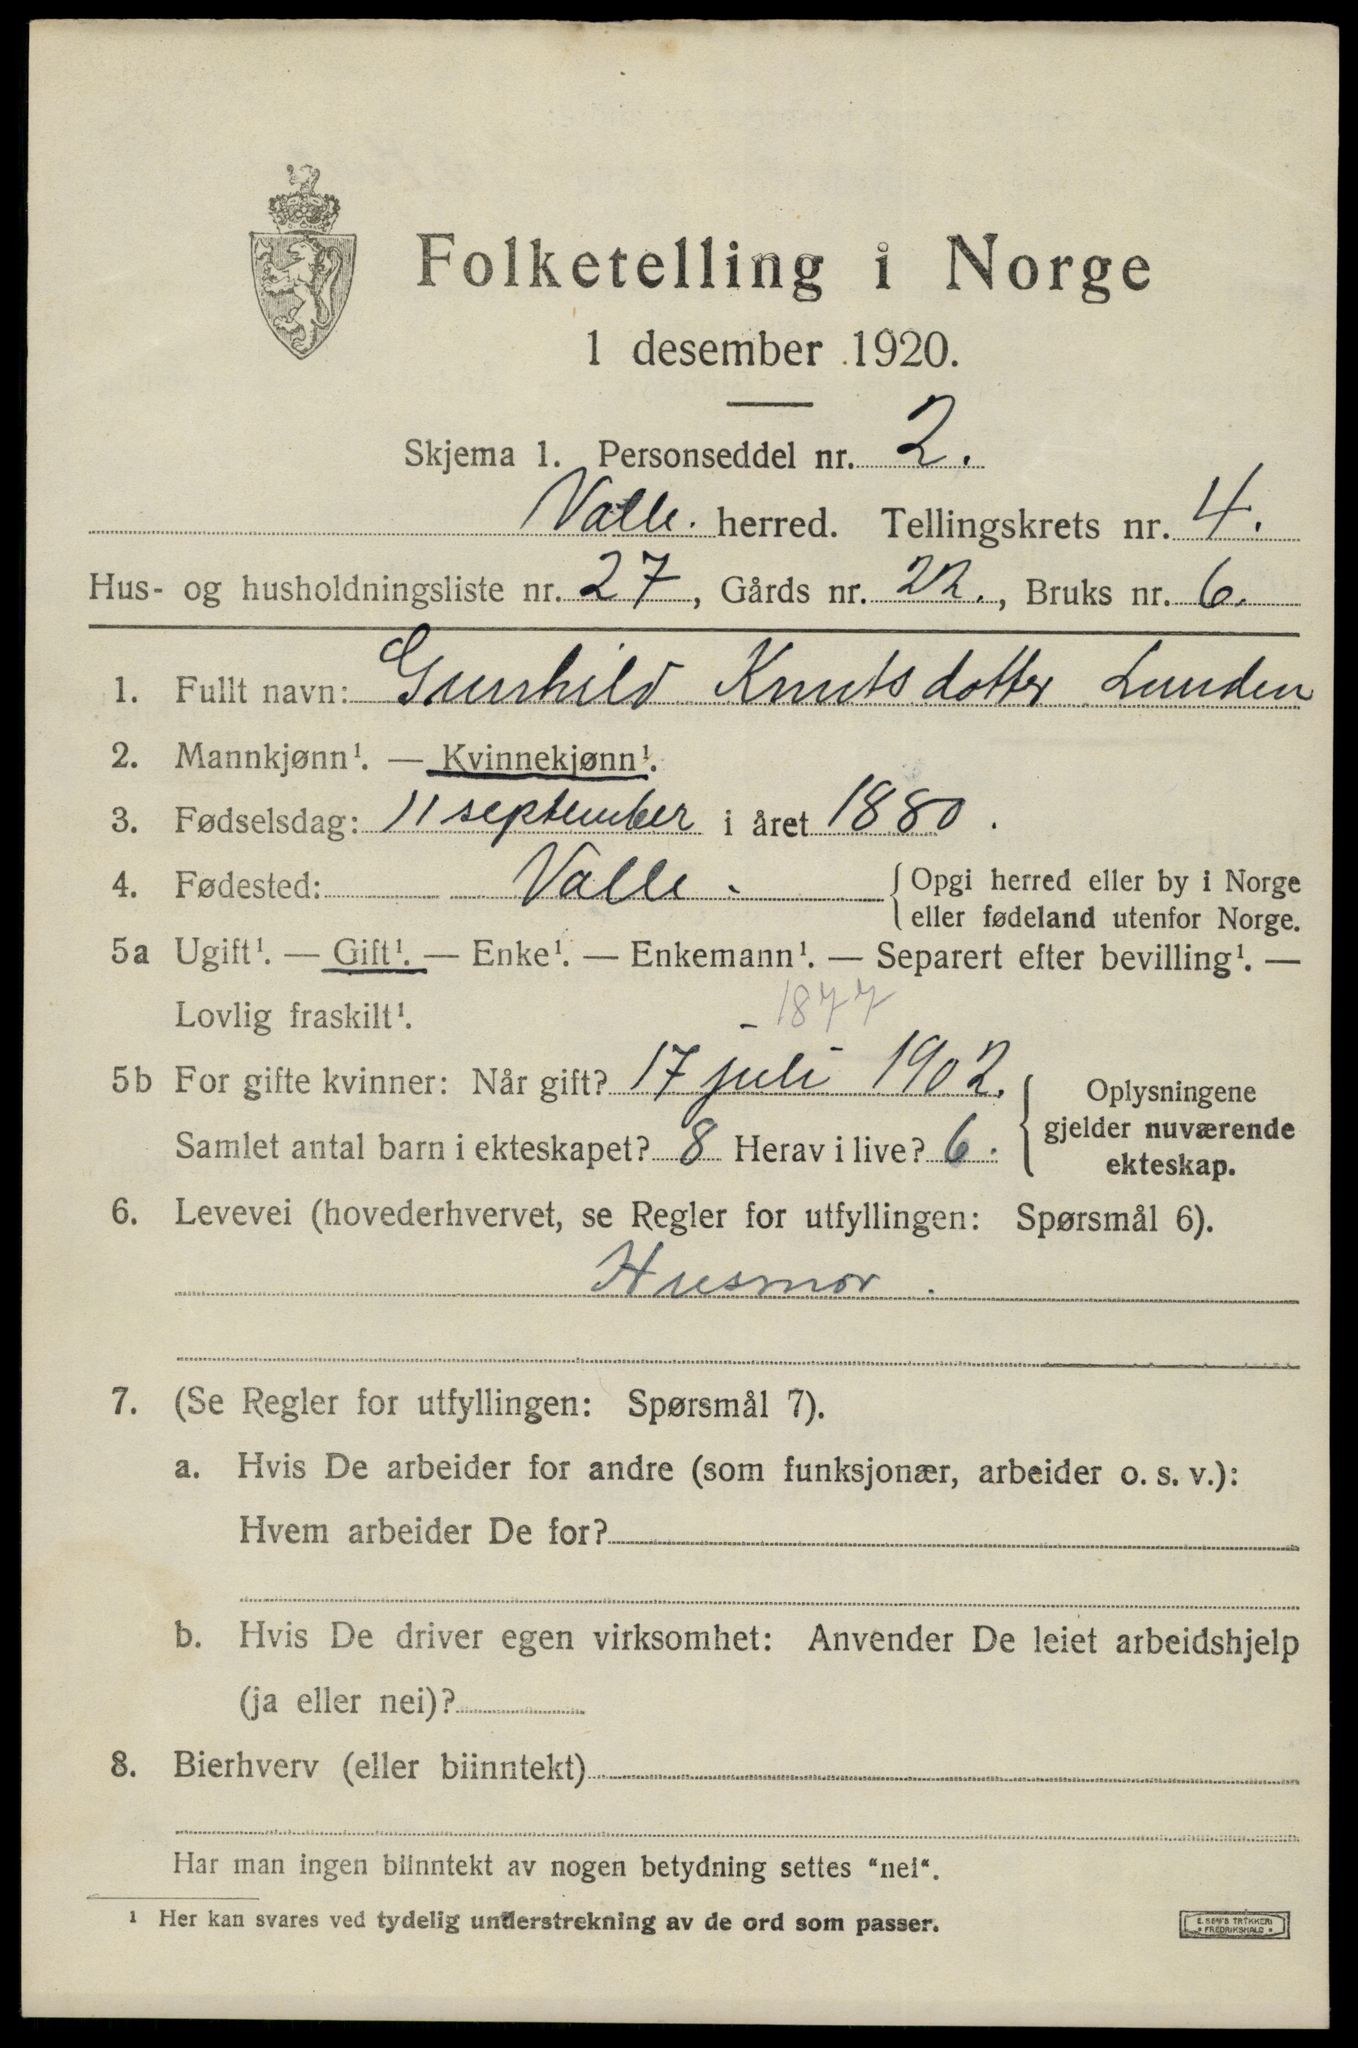 Folketelling i Norge
1 desember 1920.
Skjema 1. Personseddel nr. 2.
Valle. herred. Tellingskrets nr. 4.
Hus- og husholdningsliste nr. 27, Gårds nr. 22., Bruks nr. 6.
1. Fullt navn: Gunhild Knutsdotter Lunden
2. Mannkjønn¹. — Kvinnekjønn¹.
3. Fødselsdag: 11 september i året 1880.
4. Fødested: Valle. { Opgi herred eller by i Norge
eller fødeland utenfor Norge.
5a Ugift¹. — Gift¹. — Enke¹. — Enkemann¹. — Separert efter bevilling¹. —
Lovlig fraskilt¹. - 1877
5b For gifte kvinner: Når gift? 17 juli 1902. { Oplysningene
Samlet antal barn i ekteskapet? 8 Herav i live? 6. gjelder nuværende
ekteskap.
6. Levevei (hovederhvervet, se Regler for utfyllingen: Spørsmål 6).
Husmor.
7. (Se Regler for utfyllingen: Spørsmål 7).
a. Hvis De arbeider for andre (som funksjonær, arbeider o. s. v.):
Hvem arbeider De for?
b. Hvis De driver egen virksomhet: Anvender De leiet arbeidshjelp
(ja eller nei)?
8. Bierhverv (eller biinntekt)
Har man ingen biinntekt av nogen betydning settes "nei".
¹ Her kan svares ved tydelig understrekning av de ord som passer.
E. SEM'S TRYKKERI
• FREDRIKSHALD •